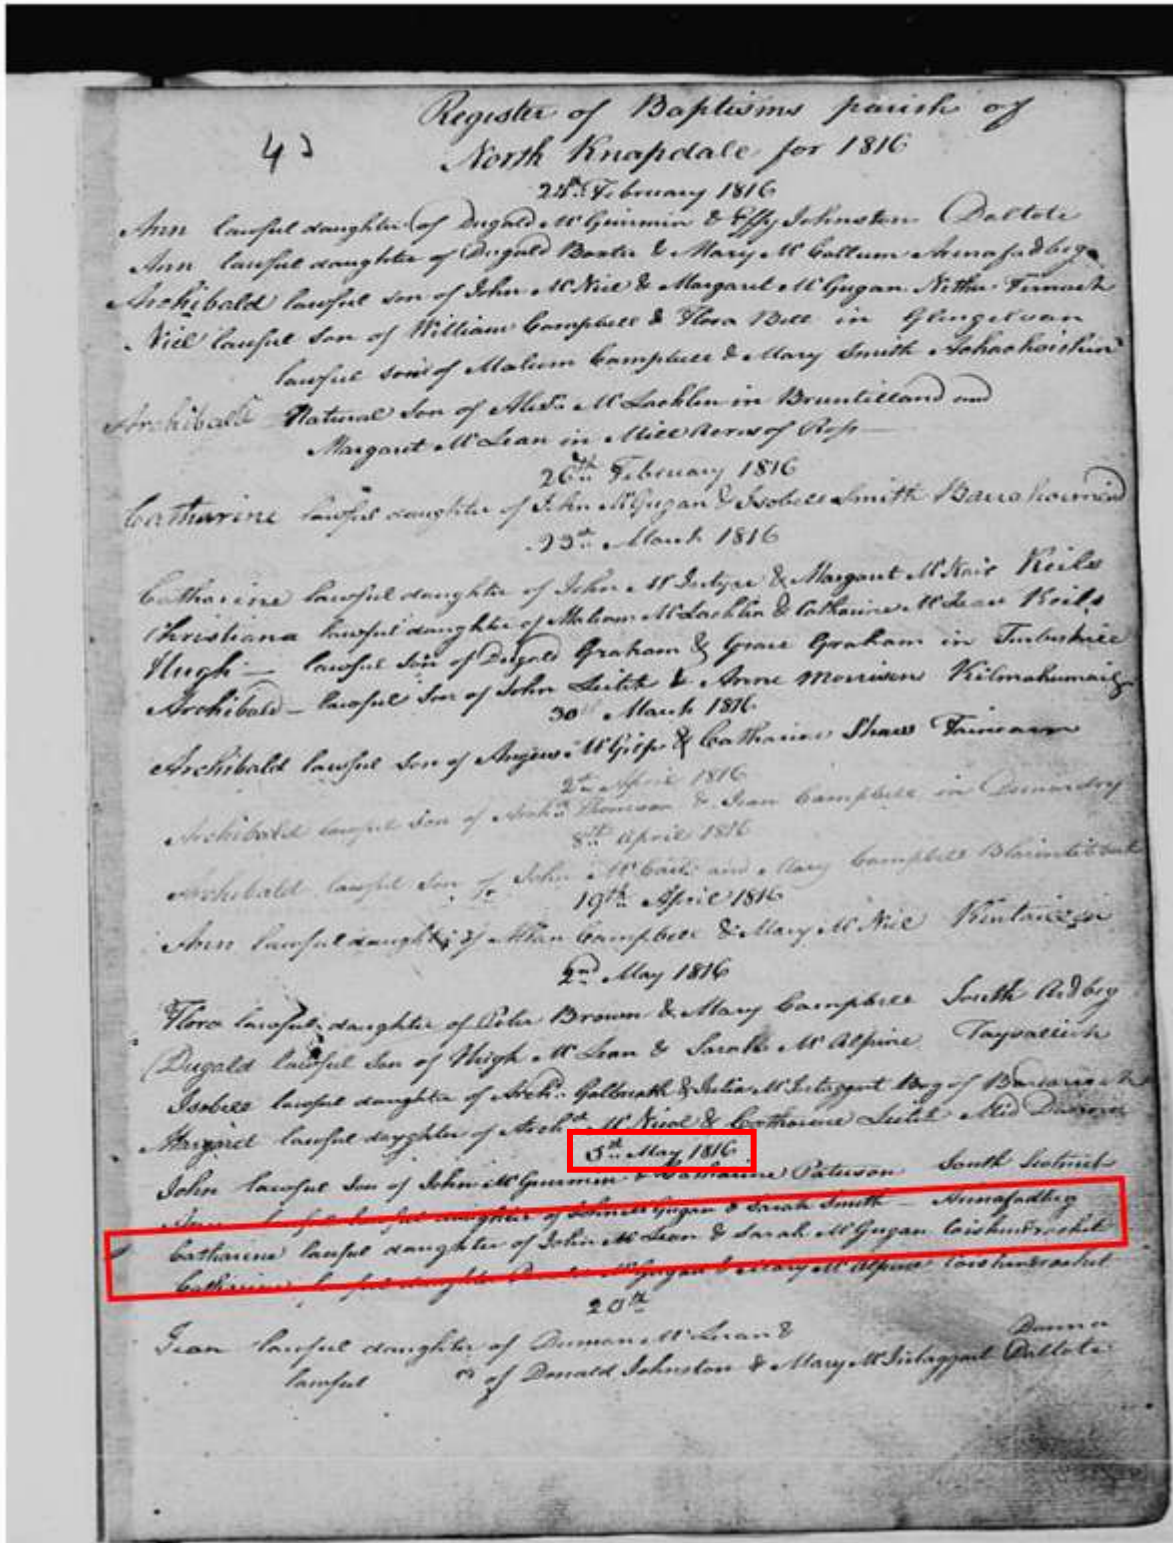 Register of Baptisms parish of
43 North Knapdale for 1816
24th February 1816
Ann lawful daughter of Dugald McGuirmin & Effy Johnston Daltote
Ann lawful daughter of Dugald Baxter & Mary McCallum Arinafadbeg
Archibald lawful son of John McNiel & Margaret McGugan Nether Fernach
Niel lawful Son of William Campbell & Flora Bell in
lawful son of Malcum Campbell & Mary Smith
Archibald Natural Son of McLachlin in and
Margaret McLean in Mill of Ross
26th February 1816
Catharine lawful daughter of John McGugan & Isobell Smith
23d March 1816
Catharine lawful daughter of John McIntyre & Margaret McNair Keils
Christiana lawful daughter of McLachlin & Catharine McLean Keils
Hugh lawful Son of Dugald Graham & Grace Graham in
Archibald lawful Son of John Leitch & Anne Morrison
30 March 1816
Archibald lawful Son of Angus McGilp & Catharine Shaw
2d April 1816
Archibald lawful Son of Archd Thomson & Jean Campbell in Dunardry
8th April 1816
Archibald lawful Son of John and Mary Campbell
19th April 1816
Ann lawful daughter of Allan Campbell & Mary McNiel
2nd May 1816
Flora lawful daughter of Peter Brown & Mary Campbell South Ardbeg
Dugald lawful Son of Hugh McLean & Sarah McAlpine Tayvallich
Isobell lawful daughter of Archd Galbreath & of
Margaret lawful daughter of Archd McNicol & Catharine Leitch Mid
5th May 1816
John lawful Son of John McGuirmin & Catharine Paterson South
Ann lawful daughter of John McGugan & Sarah Smith Arinafadbeg
Catharine lawful daughter of John McLean & Sarah McGugan
Catharine lawful daughter McGugan & Mary McAlpine
20th
Jean lawful daughter of Duncan McLean & Danna
lawful of Donald Johnston & Mary McIntaggart Daltote